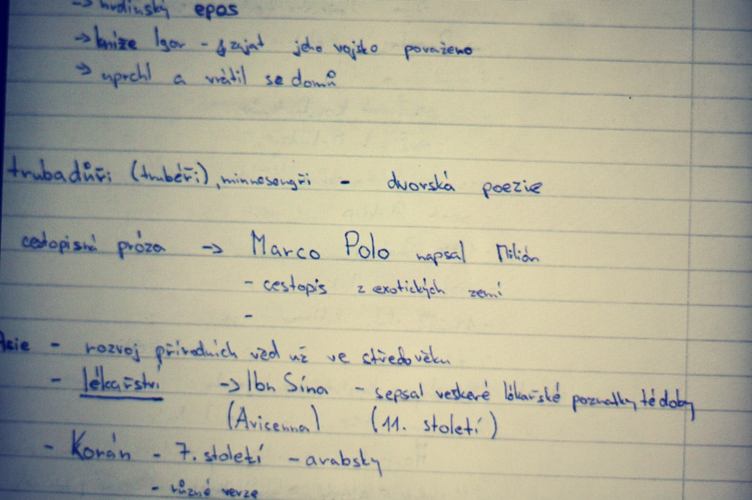 -> hrdinský epos
-> kníže Igor - zajat jeho vojsko poraženo
-> uprchl a vrátil se domů
trubadůři (trubéři), minnesengři - dvorská poezie
cestopisná próza -> Marco Polo napsal Milión
- cestopis z exotických zemí
-
Asie - rozvoj přírodních věd už ve středověku
- lékařství -> Ibn Sína - sepsal veškeré lékařské poznatky té doby
(Avicenna) (11. století)
- Korán - 7. století - arabsky
- různé verze